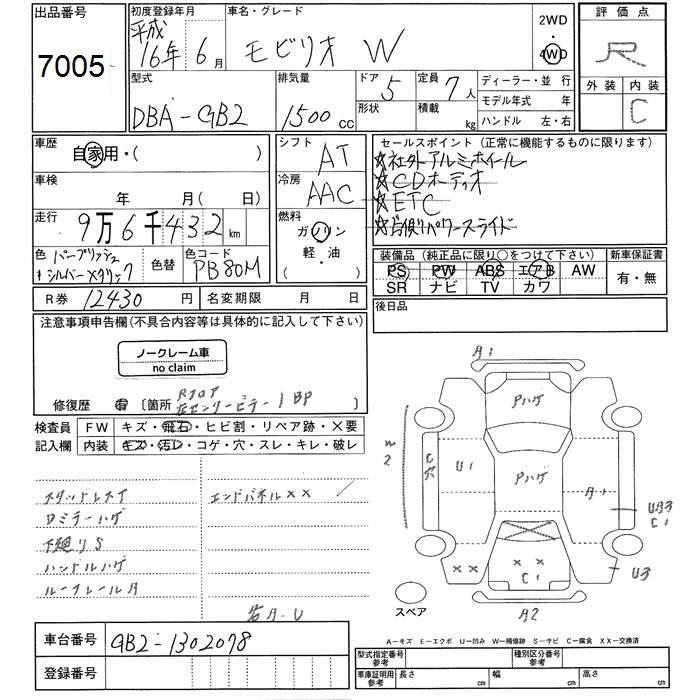 出品番号
7005
初度登録年月
平成
16年 6月
車名・グレード
モビリオ W
2WD
・
4WD
評価点
R
外装 内装
C
型式
DBA-GB2
排気量
1500 cc
ドア 5
形状
定員 7人
積載 kg
ディーラー・並行
モデル年式 年
ハンドル 左・右
車歴
自家用・( )
車検
年 月( 日)
走行
9万6千432km
シフト
AT
冷房
AAC
燃料
ガソリン
軽・油
セールスポイント (正常に機能するものに限ります)
☆社外アルミホイール
☆CDオーディオ
☆ETC
☆片側パワースライド
色
シルバーメタリック
色替
色コード
PB80M
装備品 (純正品に限り○をつけて下さい)
PS PW ABS エアB AW
SR ナビ TV カワ
新車保証書
有・無
R券 12430円
名変期限 月 日
後日品
注意事項申告欄(不具合内容等は具体的に記入して下さい)
ノークレーム車
no claim
修復歴 有 [箇所 Rフロア
右センターピラー 1 BP ]
検査員 FW キズ・飛石・ヒビ割・リペア跡・×要
記入欄 内装 キズ・汚レ・コゲ・穴・スレ・キレ・破レ
スタッドレスタイ
エンドパネル××
ドミラーハゲ
下廻りS
ハンドルハゲ
ルーフレールA
A・U
A1
Pハゲ
U1
C穴
Pハゲ
A1
UA3
C1
U3
××
C1
A2
スペア
A-キズ E-エクボ U-凹み W-補修跡 S-サビ C-腐食 XX-交換済
車台番号 GB2-1302078
登録番号
型式指定番号
参考
種別区分番号
参考
車庫証明用
参考
長さ cm
幅 cm
高さ cm